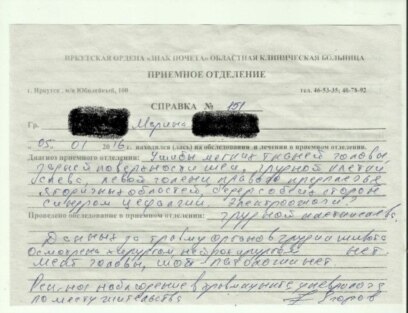 ИРКУТСКАЯ ОРДЕНА «ЗНАК ПОЧЕТА» ОБЛАСТНАЯ КЛИНИЧЕСКАЯ БОЛЬНИЦА
ПРИЕМНОЕ ОТДЕЛЕНИЕ
г. Иркутск м/н Юбилейный, 100 тел. 46-53-35, 48-78-92
СПРАВКА № 151
Гр. Марина
05. 01 2016 г. находился (лась) на обследовании и лечении в приемном отд.
Диагноз приемного отделения: Ушибы мягких тканей головы,
задней поверхности шеи, грудной клетки
слева, левой голени, правого предплечья
ягодичных областей, бедер с обеих сторон
синдром цефалгии. Электроожоги?
Проведено обследование в приемном отделении: грудной клетки слева.
Данных за травму органов груди и живота
нет
Осмотрена хирургом, нейрохирургом
МСКТ головы, шеи патологии нет
Рек-но наблюдение у травматолога, невролога
по месту жительства